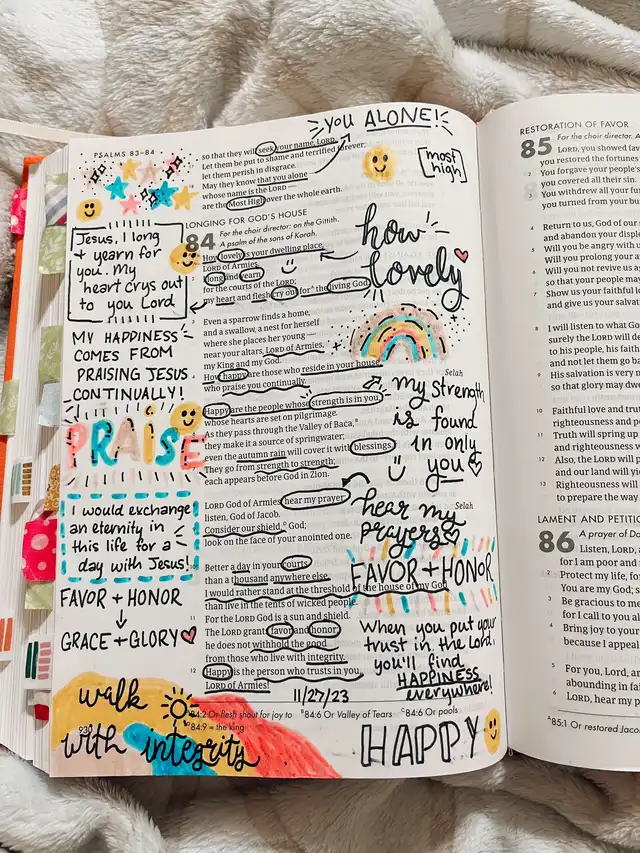 YOU ALONE!
PSALMS 83–84
so that they will seek your name, LORD.
Let them be put to shame and terrified forever;
let them perish in disgrace.
May they know that you alone —
whose name is the LORD —
are the Most High over the whole earth.
[most
high]
LONGING FOR GOD'S HOUSE
84
For the choir director: on the Gittith.
A psalm of the sons of Korah.
How lovely is your dwelling place,
LORD of Armies.
2 I long and yearn
for the courts of the LORD;
my heart and flesh cry out for the living God.
3
Even a sparrow finds a home,
and a swallow, a nest for herself
where she places her young —
near your altars, LORD of Armies,
my King and my God.
How happy are those who reside in your house,
who praise you continually.
Selah
Happy are the people whose strength is in you,
whose hearts are set on pilgrimage.
As they pass through the Valley of Baca,
they make it a source of springwater;
even the autumn rain will cover it with blessings.
They go from strength to strength;
each appears before God in Zion.
LORD God of Armies, hear my prayer;
listen, God of Jacob.
Selah
Consider our shield, God;
look on the face of your anointed one.
10
Better a day in your courts
than a thousand anywhere else.
I would rather stand at the threshold of the house of my God
than live in the tents of wicked people.
11
For the LORD God is a sun and shield.
The LORD grants favor and honor;
he does not withhold the good
from those who live with integrity.
12
Happy is the person who trusts in you,
LORD of Armies!
11/27/23
84:2 Or flesh shout for joy to B84:6 Or Valley of Tears C84:6 Or pools
84:9 = the king
930
Jesus, I long
+ yearn for
you. My
heart crys out
to you Lord
MY HAPPINESS
COMES FROM
PRAISING JESUS
CONTINUALLY!
PRAISE
I would exchange
an eternity in
this life for a
day with Jesus!
FAVOR + HONOR
GRACE + GLORY
walk
with integrity
how
lovely
my strength
is found
in only
you
hear my
prayers
FAVOR + HONOR
When you put your
trust in the Lord,
you'll find
HAPPINESS
everywhere!
HAPPY
RESTORATION OF FAVOR
85
For the choir director. A
LORD, you showed fav
you restored the fortunes
2 You forgave your people's
you covered all their sin.
3 You withdrew all your fu
you turned from your bu
4 Return to us, God of our s
and abandon your disple
5 Will you be angry with u
Will you prolong your a
6 Will you not revive us ag
so that your people may
7 Show us your faithful lo
and give us your salvat
8 I will listen to what G
surely the LORD will de
to his people, his fait
and not let them go ba
9 His salvation is very n
so that glory may dwe
10 Faithful love and tru
righteousness and pe
11 Truth will spring up
and righteousness w
12 Also, the LORD will p
and our land will yie
13 Righteousness will
to prepare the way
LAMENT AND PETITIO
86
A prayer of Da
Listen, LORD,
for I am poor and
2 Protect my life, fo
You are my God; s
3 Be gracious to m
for I call to you al
4 Bring joy to your
because I appeal
5 For you, Lord, ar
abounding in fa
6 LORD, hear my p
A85:1 Or restored Jaco